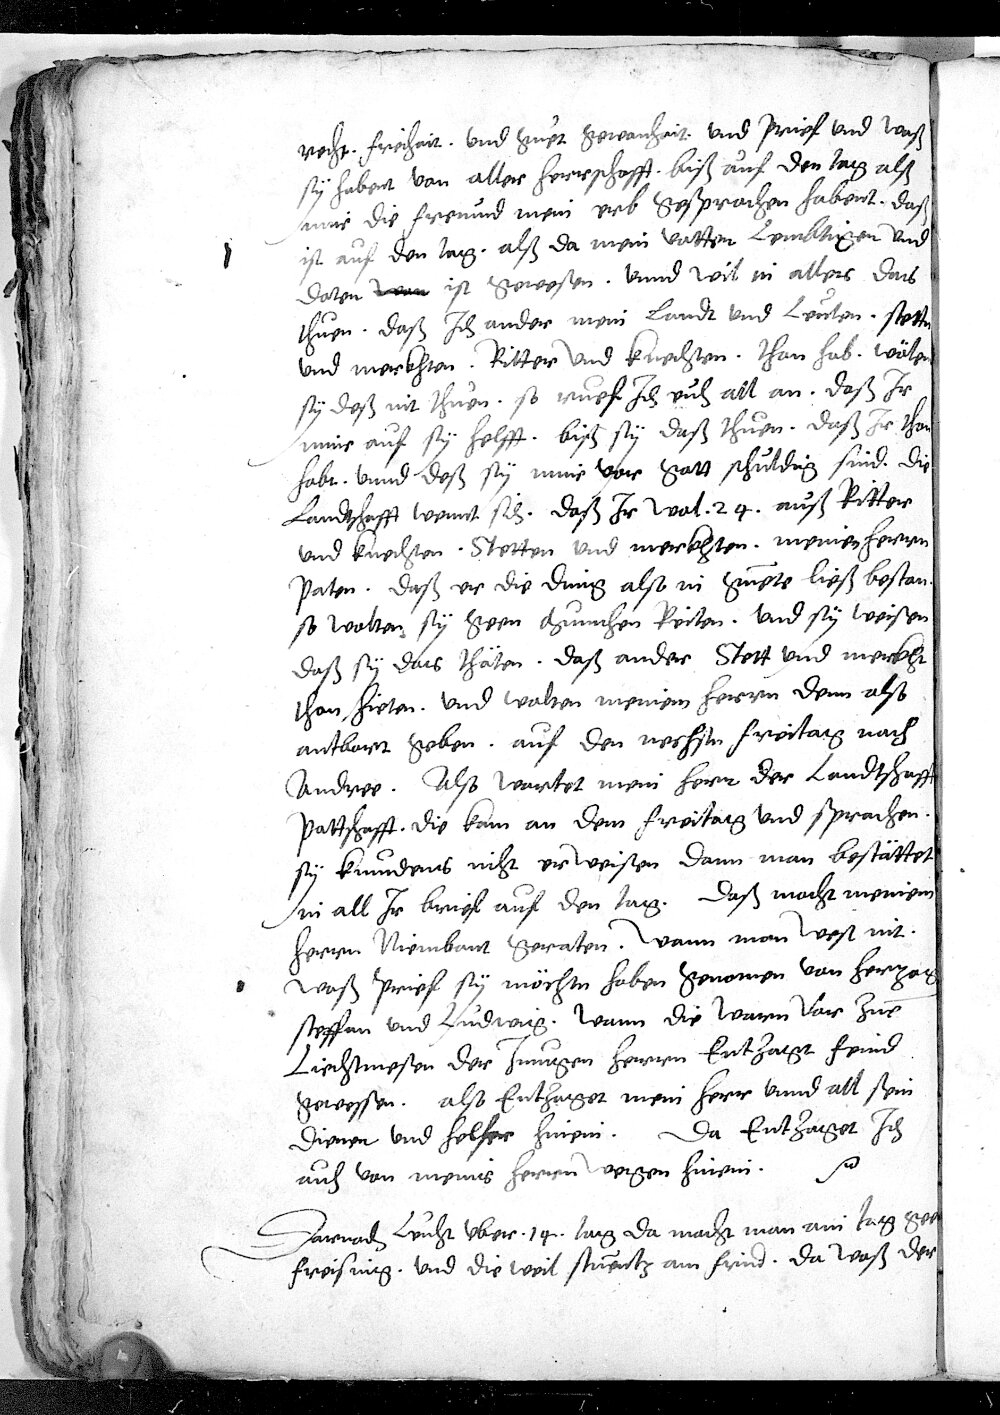 recht. freihait. und guet gewonhait. und prief und waß
sy habent von aller herrschafft. biß auf den tag alß
mir die freund mein erb gesprochen habent. daß
ist auf den tag. alß da mein vatter Lembtigen und
doten ist gewesen. unnd wil in allers das
thuen. daß Ich ander mein Landt und Leuten. stett
und merkhten. Ritter und knechten. than hab. wölen
sy deß nit thuen. so ruef Ich euch all an. daß Ir
mir auf sy helfft. biß sy daß thuen. daß Ir than
habt. unnd deß sy mir vor gott schuldig sind. die
Landtschafft wennt sich. daß Ir wol. 24. auß Ritter
und knechten. Stetten und merkhten. meinen herrn
paten. daß er die ding also in guete ließ bestan.
so wolten sy geen München Reiten. und sy weisen
daß sy das thäten. daß ander Stett und merkht
than hieten. und wolten meinem herrn denn also
antbort geben. auf den nechsten freitag nach
Andree. Also wartet mein herr der Landtschafft
pottschafft. die kam an dem freitag und sprachen.
sy kundens nicht erweisen dann man bestättet
in all Ir brief auf den tag. Daß macht meinem
herrn Niembant geraten. wann man west nit.
waß prief sy möchten haben genomen von herzog
steffan und Ludwig. wann die warn vor zue
Liechtmesen der Jungen herren Entzagt feind
gewessen. also Entzaget mein herr unnd all sein
diener und helfer hinein. Da Entzaget Ich
auch von meins herrn wegen hinein.
Darnach Leicht uber. 14. tag da macht man ain tag gen
freising. und die weil stuentz am frid. da waß der